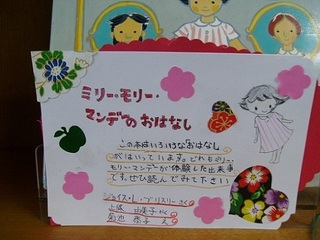 ミリー・モリー・
マンデーのおはなし
この本はいろいろなおはなし
がはいっています。どれもミリー・
モリー・マンデーが体験した出来事
です。ぜひ読んでみて下さい
ジョイス・L・ブリスリー さく
上條 由美子 やく
菊池 恭子 え